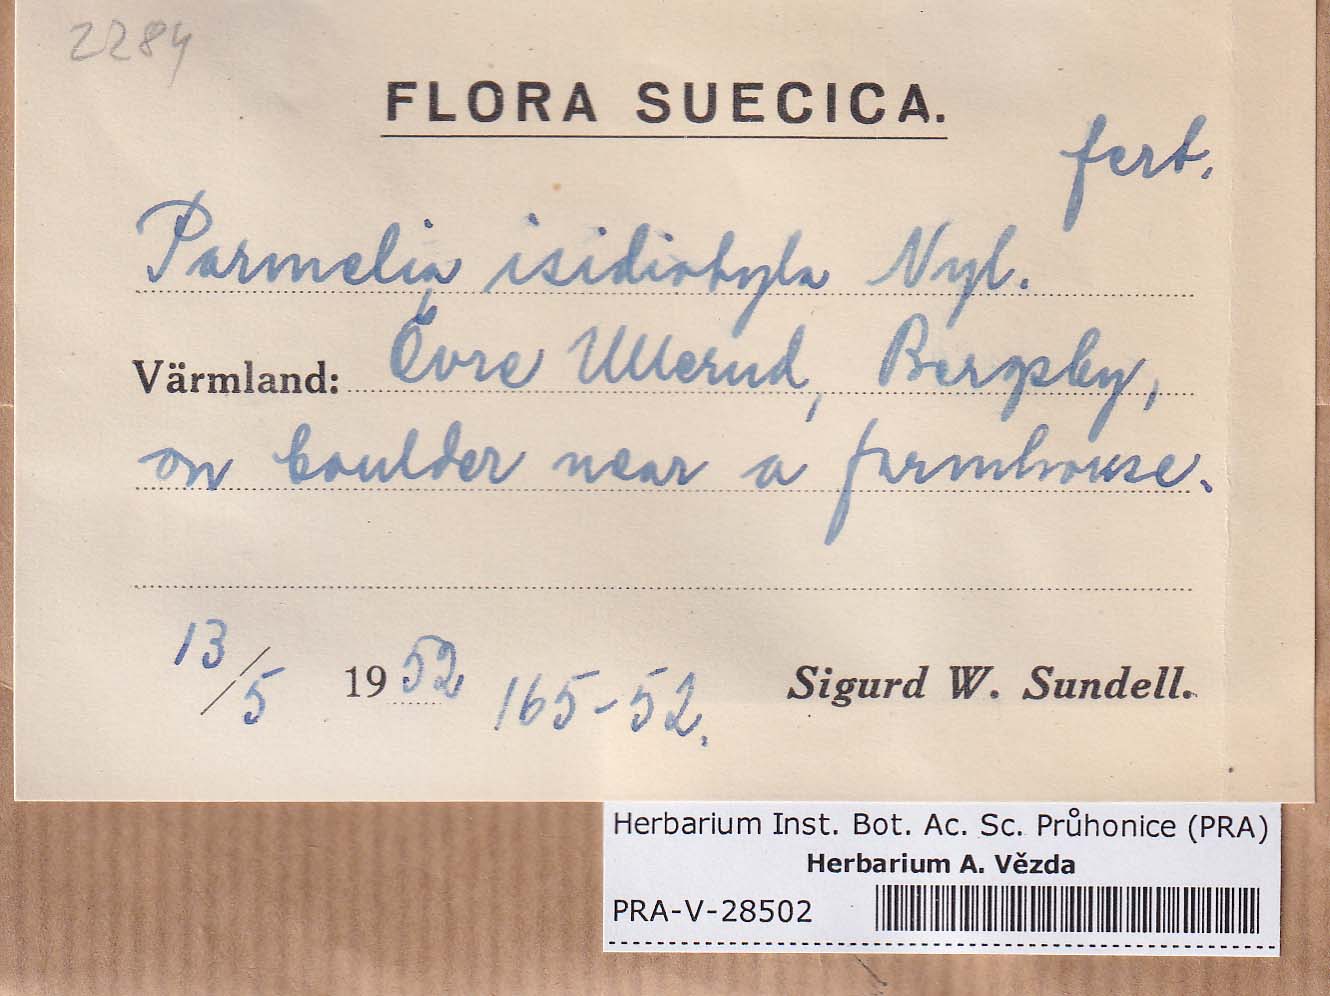 2284
FLORA SUECICA.
fert.
Parmelia isidiotyla Nyl.
Värmland: Övre Ullerud, Bergsby,
on boulder near a farmhouse.
13/5 1952 165-52. Sigurd W. Sundell.
Herbarium Inst. Bot. Ac. Sc. Průhonice (PRA)
Herbarium A. Vězda
PRA-V-28502